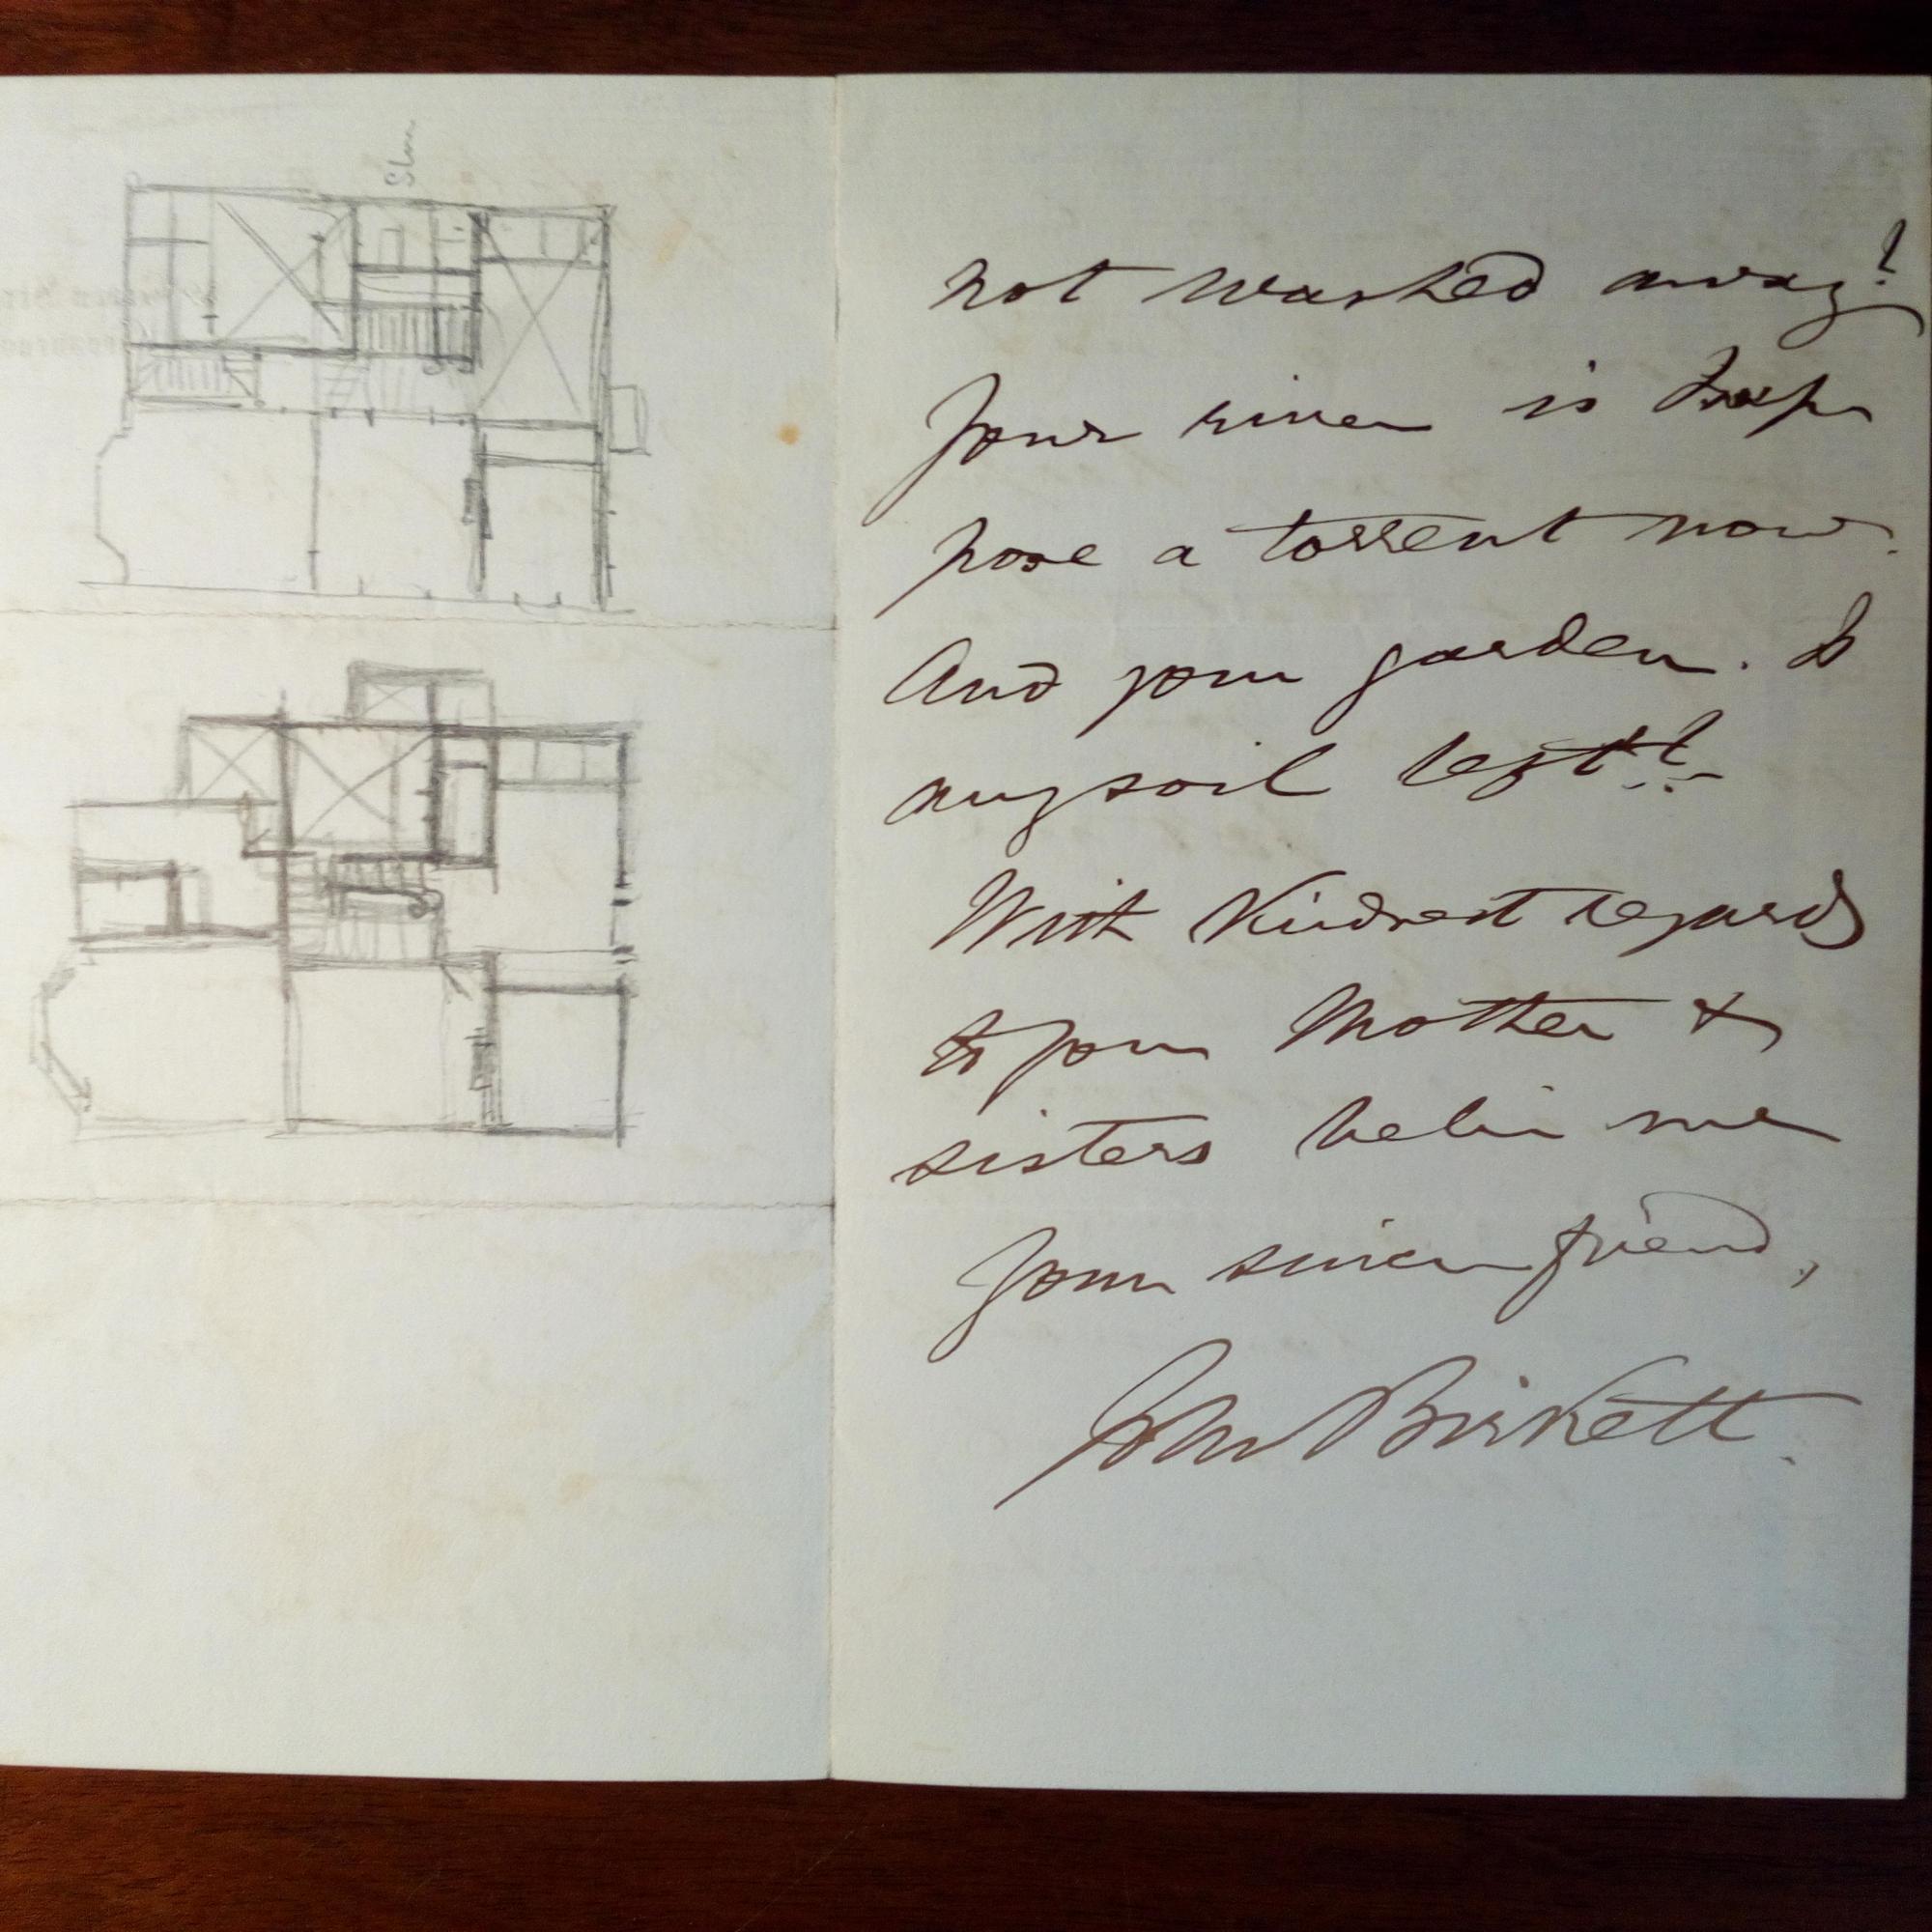 not washed away?
Your river is I sup
pose a torrent now.
And your garden. Is
any soil left?
With kindest regards
to your Mother &
sisters belie me
Your sincere friend,
John Birkett.